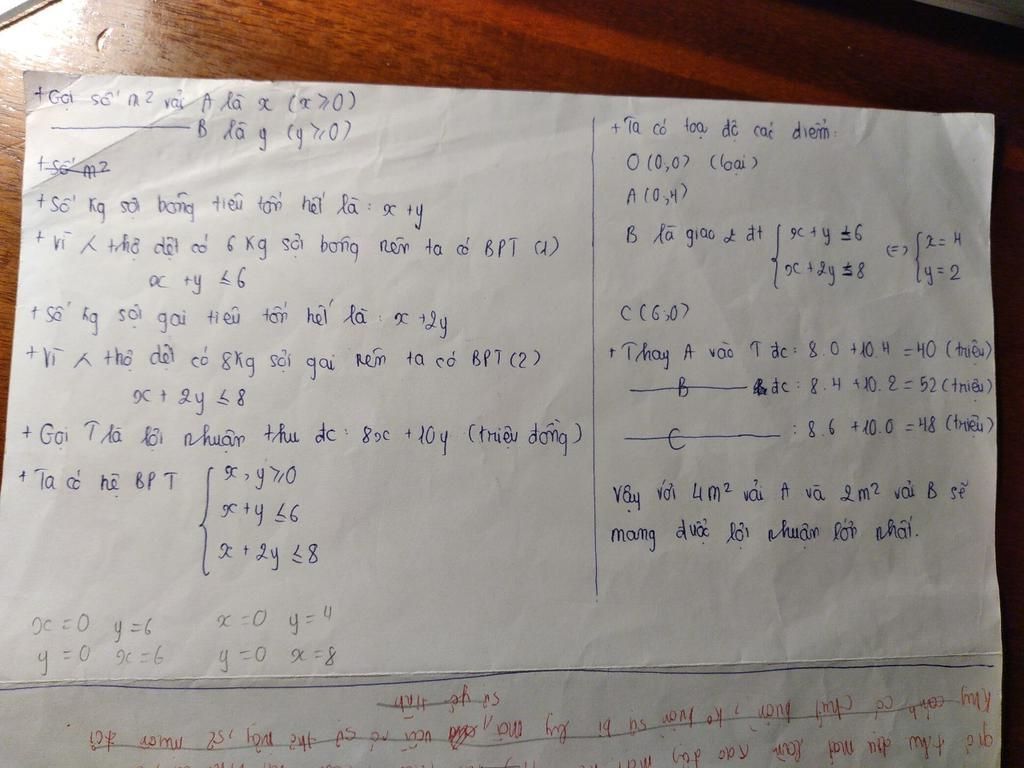 + Gọi số m² vải A là x (x ≥ 0)
B là y (y ≥ 0)
+ Số m²
+ Số kg sợi bông tiêu tốn hết là: x+y
+ Vì 1 thợ dệt có 6 kg sợi bông nên ta có BPT (1)
x + y ≤ 6
+ Số kg sợi gai tiêu tốn hết là: x + 2y
+ Vì 1 thợ dệt có 8kg sợi gai nên ta có BPT (2)
x + 2y ≤ 8
+ Gọi T là lợi nhuận thu đc: 8x + 10y (triệu đồng)
+ Ta có hệ BPT { x, y ≥ 0
x + y ≤ 6
x + 2y ≤ 8
x = 0 y = 6 x = 0 y = 4
y = 0 x = 6 y = 0 x = 8
+ Ta có toạ độ các điểm:
O (0;0) (loại)
A (0;4)
B là giao 2 đt { x + y ≤ 6 <=> { x = 4
x + 2y ≤ 8 y = 2
C (6;0)
+ Thay A vào T đc: 8.0 + 10.4 = 40 (triệu)
B đc: 8.4 + 10.2 = 52 (triệu)
C : 8.6 + 10.0 = 48 (triệu)
Vậy với 4m² vải A và 2m² vải B sẽ
mang được lợi nhuận lớn nhất.